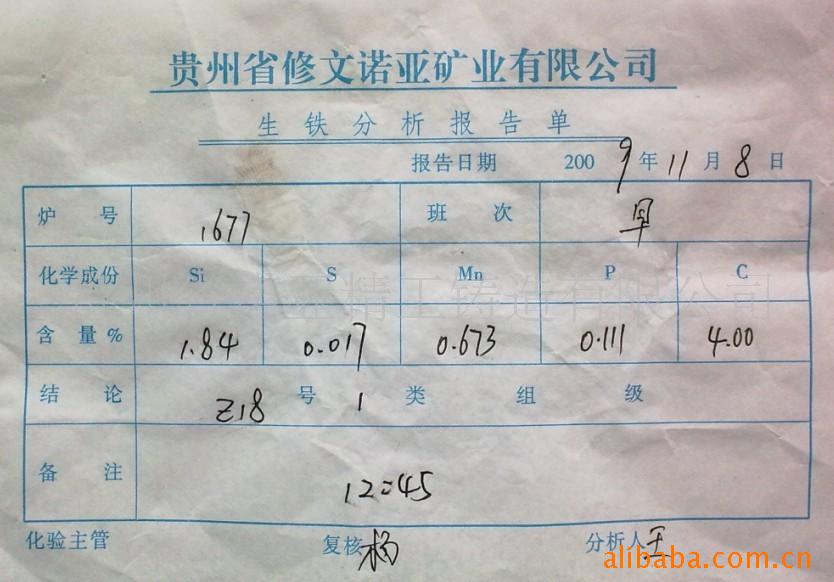 贵州省修文诺亚矿业有限公司
生铁分析报告单
报告日期 2009年11月8日
炉号 1677 班次 早
化学成份 Si S Mn P C
含量% 1.84 0.017 0.673 0.111 4.00
结论 Z18号 1类 组 级
备注 12=45
化验主管 复核 杨 分析人 王
精工铸造有限公司
alibaba.com.cn